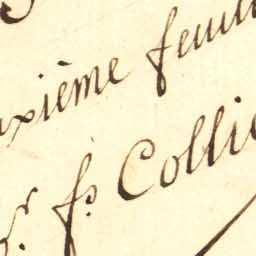 uxième feuil
r. fs. Collie